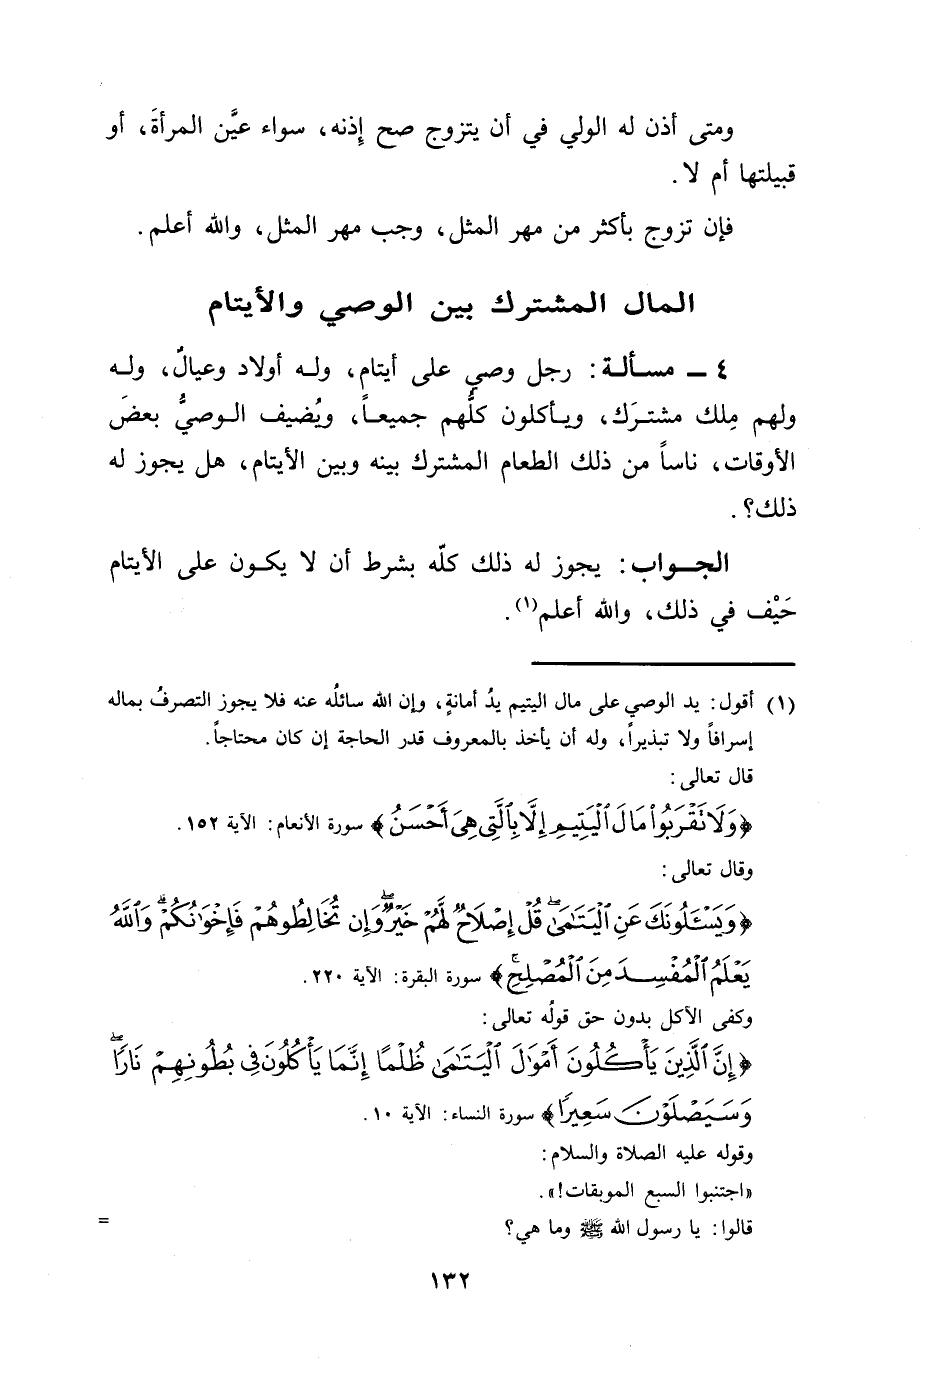 ومتى أذن له الولي في أن يتزوج صح إِذنه، سواء عيَّن المرأةَ، أو
قبيلتها أم لا.
فإن تزوج بأكثر من مهر المثل، وجب مهر المثل، والله أعلم.
المال المشترك بين الوصي والأيتام
٤ ـ مسألة: رجل وصي على أيتام، وله أولاد وعيالٌ، وله
ولهم مِلك مشترَك، ويأكلون كلُّهم جميعاً، ويُضيف الوصيُّ بعضَ
الأوقات، ناساً من ذلك الطعام المشترك بينه وبين الأيتام، هل يجوز له
ذلك؟.
الجواب: يجوز له ذلك كلّه بشرط أن لا يكون على الأيتام
حَيْف في ذلك، والله أعلم(١).
(١) أقول: يد الوصي على مال اليتيم يدُ أمانةٍ، وإن الله سائلُه عنه فلا يجوز التصرفُ بماله
إسرافاً ولا تبذيراً، وله أن يأخذ بالمعروف قدر الحاجة إن كان محتاجاً.
قال تعالى:
﴿وَلَا نَقْرَبُوا۟ مَالَ ٱلْيَتِيمِ إِلَّا بِٱلَّتِى هِىَ أَحْسَنُ﴾ سورة الأنعام: الآية ١٥٢.
وقال تعالى:
﴿وَيَسْـَٔلُونَكَ عَنِ ٱلْيَتَـٰمَىٰ ۖ قُلْ إِصْلَاحٌ لَّهُمْ خَيْرٌ ۖ وَإِن تُخَالِطُوهُمْ فَإِخْوَٰنُكُمْ ۚ وَٱللَّهُ
يَعْلَمُ ٱلْمُفْسِدَ مِنَ ٱلْمُصْلِحِ ۚ﴾ سورة البقرة: الآية ٢٢٠.
وكفى الآكل بدون حق قولُه تعالى:
﴿إِنَّ ٱلَّذِينَ يَأْكُلُونَ أَمْوَٰلَ ٱلْيَتَـٰمَىٰ ظُلْمًا إِنَّمَا يَأْكُلُونَ فِى بُطُونِهِمْ نَارًا ۖ
وَسَيَصْلَوْنَ سَعِيرًا﴾ سورة النساء: الآية ١٠.
وقوله عليه الصلاة والسلام:
«اجتنبوا السبع الموبقات!».
قالوا: يا رسول الله ﷺ وما هي؟ =
١٣٢